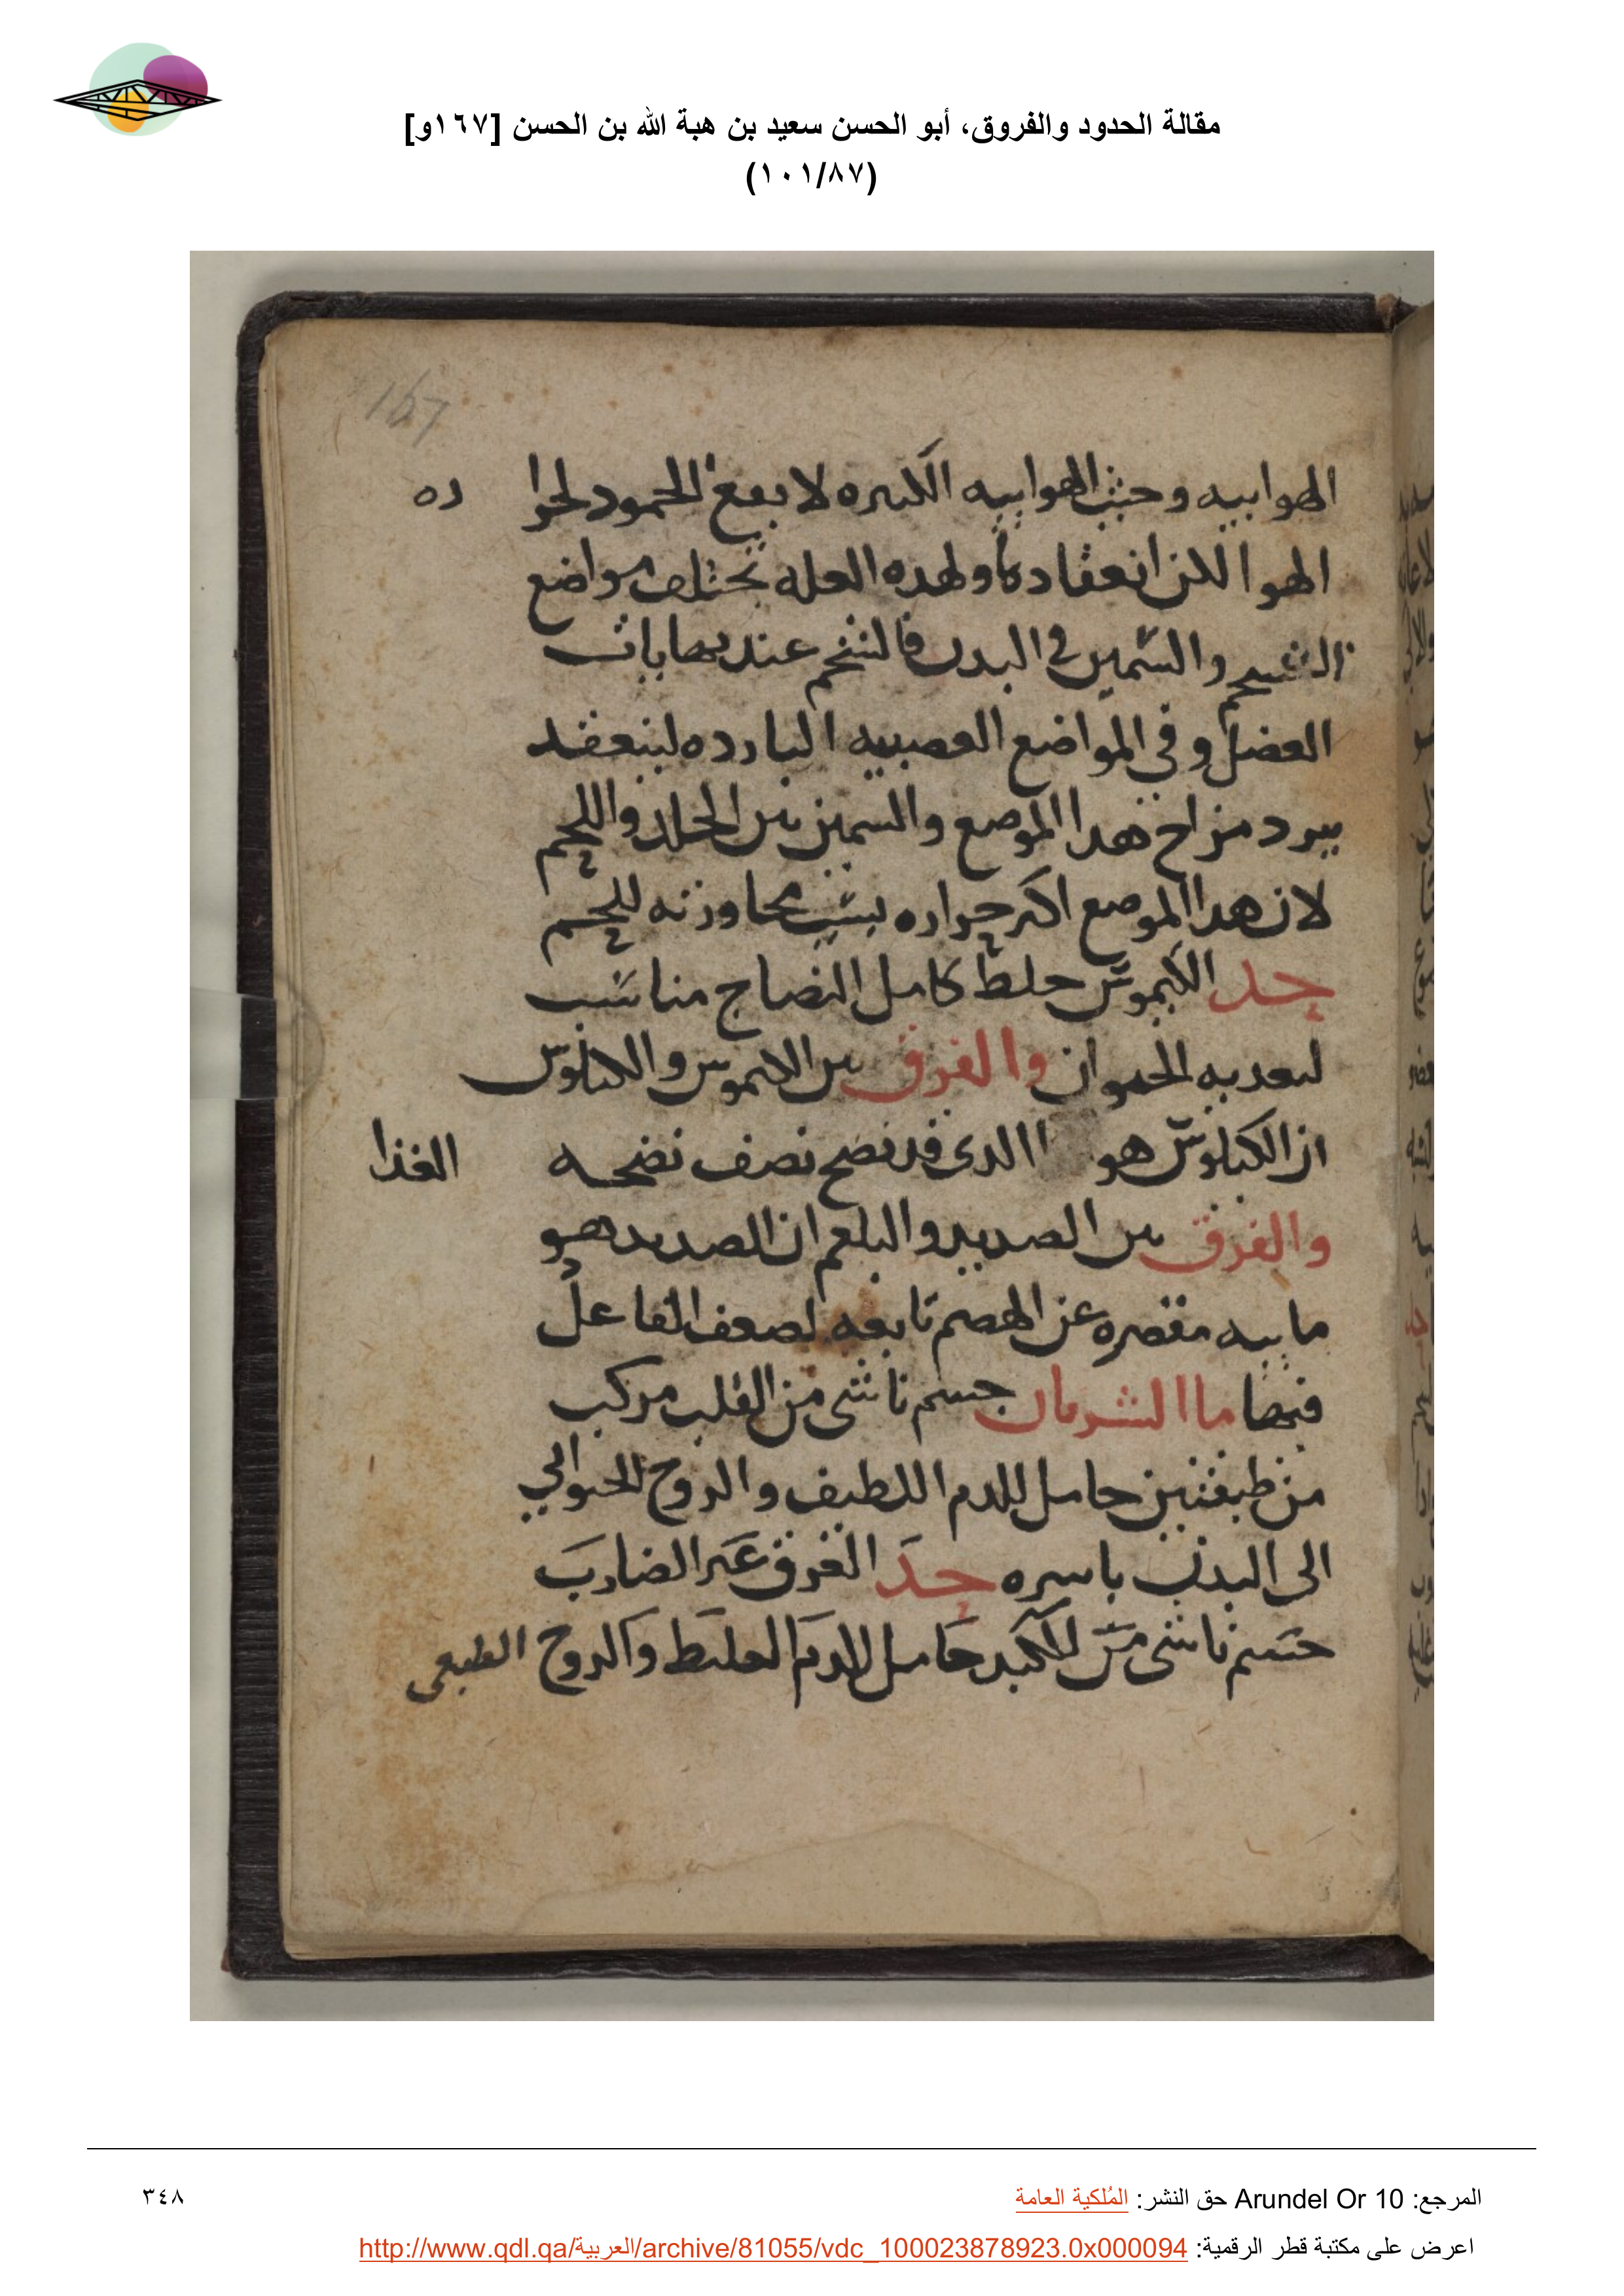 مقالة الحدود والفروق، أبو الحسن سعيد بن هبة الله بن الحسن [١٦٧و]
(١٠١/٨٧)
167
الهوابيه وحيث الهوابيه الكثيره لا يقع الجمود لحرا ره
الهوا لكن انعقاد ما ولهده العله تختلف مواضع
الشحم والسمين في البدن فالشحم عند نهايات
العضل وفي المواضع العصبيه البارده لينعقد
ببرد مزاج هدا الموضع والسمين بين الجلد واللحم
لان هدا الموضع اكثر حراره بسبب مجاورته للحم
حد الكيموس خلط كامل النضاج مناسب
لتغديه الحيوان والفرق بين الكيموس والكيلوس
ان الكيلوس هو الغذا الدي قد نضج نصف نضجه
والفرق بين الصديد والبلغم ان الصديد هو
مابيه مقصره عن الهضم تابعه لضعف الفاعل
فيها ما الشريان جسم ناشى من القلب مركب
من طبقتين حامل للدم اللطيف والروح الحيواني
الى البدن باسره حد العرق غير الضارب
جسم ناشى من الكبد حامل للدم الغليظ والروح الطبيعي
المرجع: Arundel Or 10 حق النشر: المُلكية العامة
٣٤٨
اعرض على مكتبة قطر الرقمية: http://www.qdl.qa/العربية/archive/81055/vdc_100023878923.0x000094